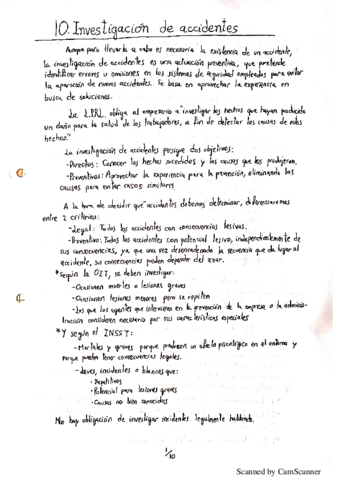 10. Investigación de accidentes
Aunque para llevarla a cabo es necesaria la existencia de un accidente,
la investigación de accidentes es una actuación preventiva, que pretende
identificar errores u omisiones en los sistemas de seguridad empleados para evitar
la aparición de nuevos accidentes. Se basa en aprovechar la experiencia en
busca de soluciones.
La LPRL obliga al empresario a "investigar los hechos que hayan producido
un daño para la salud de los trabajadores, a fin de detectar las causas de estos
hechos."
La investigación de accidentes persigue dos objetivos:
-Directos: Conocer los hechos sucedidos y las causas que los produjeron.
-Preventivos: Aprovechar la experiencia para la prevención, eliminando las
causas para evitar casos similares.
A la hora de decidir qué accidentes debemos determinar, diferenciaremos
entre 2 criterios:
-Legal: Todos los accidentes con consecuencias lesivas.
-Preventivo: Todos los accidentes con potencial lesivo, independientemente de
sus consecuencias, ya que una vez desencadenada la secuencia que da lugar al
accidente, sus consecuencias pueden depender del azar.
*Según la OIT, se deben investigar:
-Ocasionen muertes o lesiones graves
-Ocasionen lesiones menores pero se repiten
-Los que los agentes que intervienen en la prevención de la empresa o la administra-
ción consideren necesario por sus características especiales
*Y según el INSST:
-Mortales y graves porque producen un efecto psicológico en el entorno y
porque pueden tener consecuencias legales.
-Leves, incidentes o blancos que:
-Repetitivos
-Potencial para lesiones graves
-Causas no bien conocidas
No hay obligación de investigar incidentes legalmente hablando.
1/10
Scanned by CamScanner